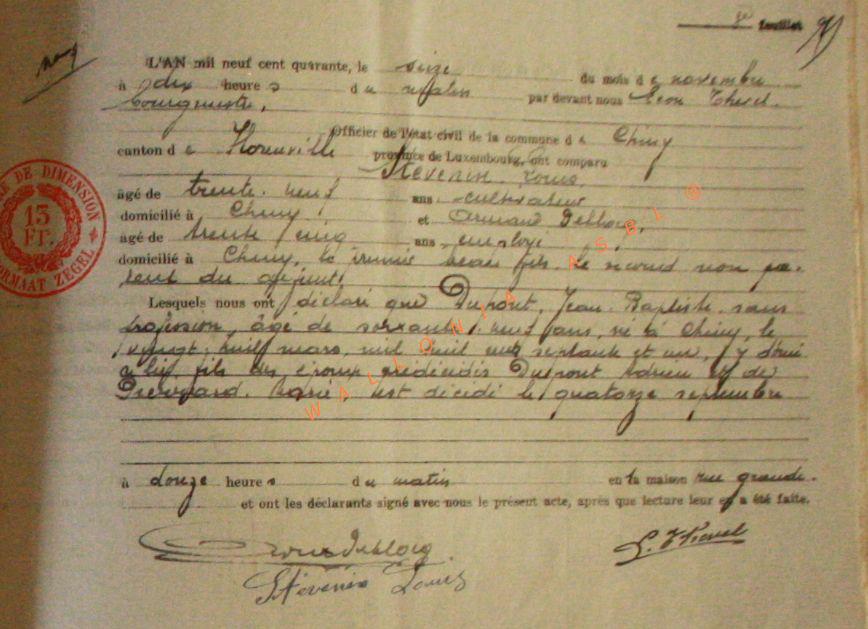 9e feuillet
neuf
L'AN mil neuf cent quarante, le seize du mois de novembre
à dix heures du matin par devant nous Léon
bourgmestre,
Officier de l'état civil de la commune de Chiny
canton de Florenville province de Luxembourg, ont comparu
Stevenin Louis,
âgé de trente neuf ans cultivateur
domicilié à Chiny et Armand
âgé de trente cinq ans employé
domicilié à Chiny, le premier beau fils, le second non pa-
rent du défunt
Lesquels nous ont déclaré que Dupont, Jean Baptiste sans
profession, âgé de soixante neuf ans, né à Chiny, le
vingt huit mars, mil huit cent septante et un, y domi-
cilié fils des époux prédécédés Dupont Adrien et de
Marie, est décédé le quatorze septembre
à douze heures du matin en la maison rue grande.
et ont les déclarants signé avec nous le présent acte, après que lecture leur en a été faite.
Stévenin Louis
DE DIMENSION
13
FR.
FORMAAT ZEGEL
WALLONIA ASBL ©